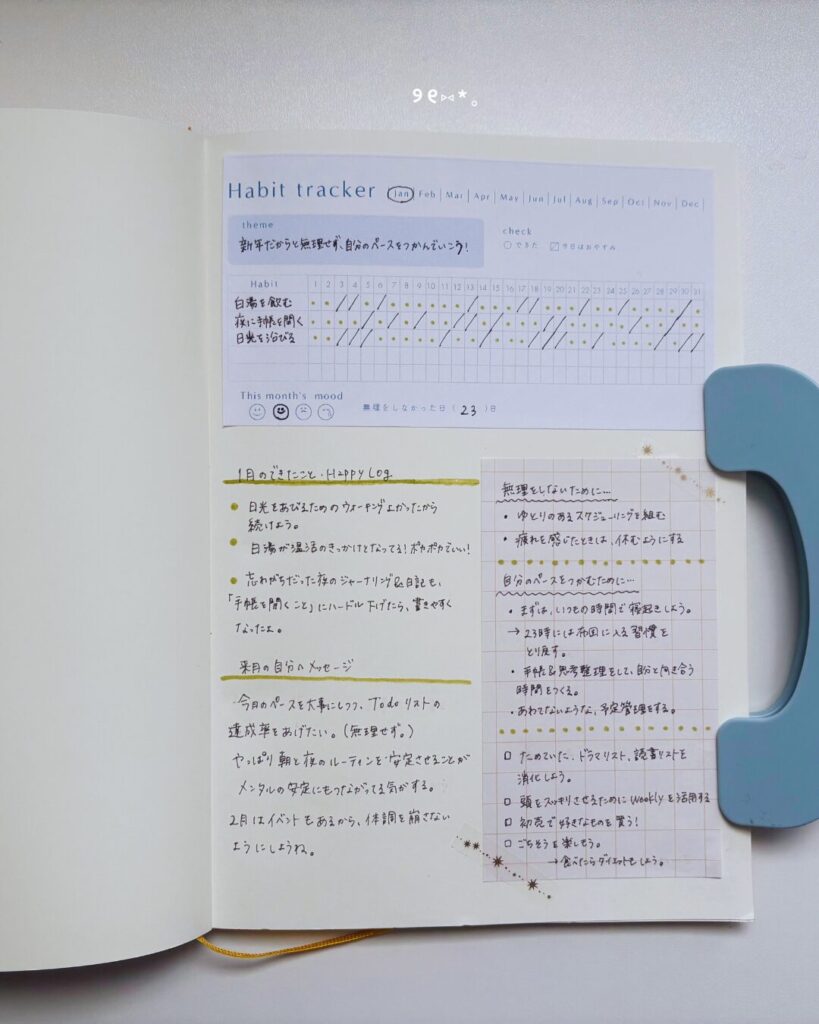 ୨୧⑅*。
Habit tracker Jan Feb Mar Apr May Jun Jul Aug Sep Oct Nov Dec
theme
新年だからと無理せず、自分のペースをつかんでいこう!
check
できた 今日はおやすみ
Habit 1 2 3 4 5 6 7 8 9 10 11 12 13 14 15 16 17 18 19 20 21 22 23 24 25 26 27 28 29 30 31
白湯を飲む
夜に手帳を開く
日光を浴びる
This month's mood
無理をしなかった日 ( 23 )日
1月のできたこと・Happy Log
日光をあびるためのウォーキングよかったから
続けよう。
白湯が温活のきっかけとなってる!ポカポカでいい!
忘れがちだった夜のジャーナリング&日記も、
「手帳を開くこと」にハードル下げたら、書きやすく
なったよ。
来月の自分へメッセージ
今月のペースを大事にしつつ、Todoリストの
達成率をあげたい。(無理せず。)
やっぱり朝と夜のルーティンを安定させることが
メンタルの安定にもつながってる気がする。
2月はイベントもあるから、体調を崩さない
ようにしようね。
無理をしないために…
・ゆとりのあるスケジューリングを組む
・疲れを感じたときは、休むようにする
自分のペースをつかむために…
・まずは、いつもの時間で寝起きしよう。
→23時には布団に入る習慣を
とり戻す。
・手帳&思考整理をして、自分と向き合う
時間をつくる。
・あわてないような、予定管理をする。
□ ためていた、ドラマリスト、読書リストを
消化しよう。
□ 頭をスッキリさせるためにWeeklyを活用する
□ 初売で好きなものを買う!
□ ごちそうを楽しもう。
→食べたらダイエットもしよう。